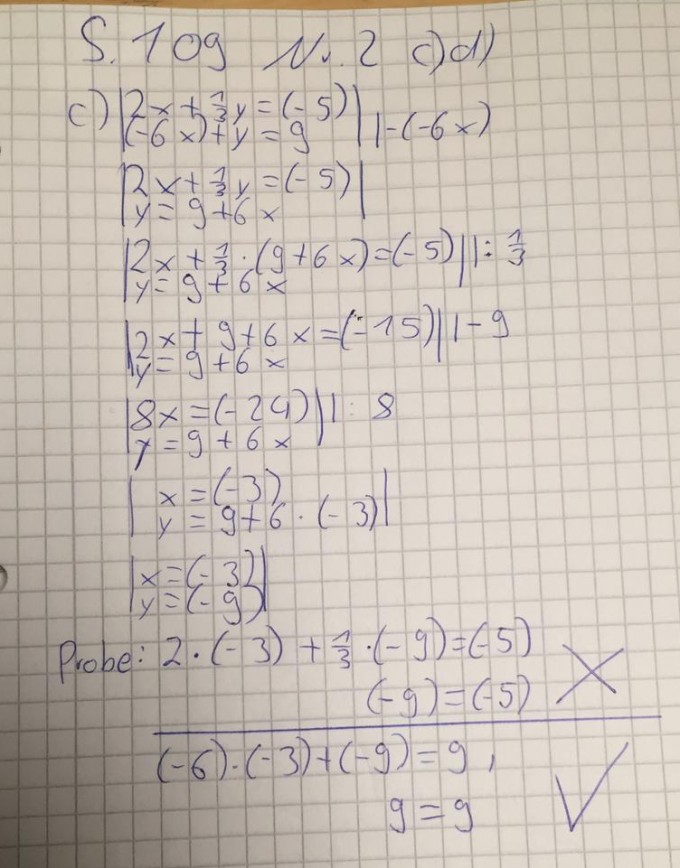 S. 109 Nr. 2 c)d)
c) |2x + 1/3 y = (-5)|
|(-6x) + y = 9| | -(-6x)
|2x + 1/3 y = (-5)|
|y = 9+6x
|2x + 1/3 · (9+6x) = (-5)| | : 1/3
|y = 9+6x
|2x + 9+6x = (-15)| | - 9
|y = 9+6x
|8x = (-24)| | : 8
|y = 9+6x
| x = (-3)
| y = 9+6 · (-3)|
|x = (-3)|
|y = (-9)|
Probe: 2 · (-3) + 1/3 · (-9) = (-5)
(-9) = (-5)
(-6) · (-3) + (-9) = 9
9 = 9